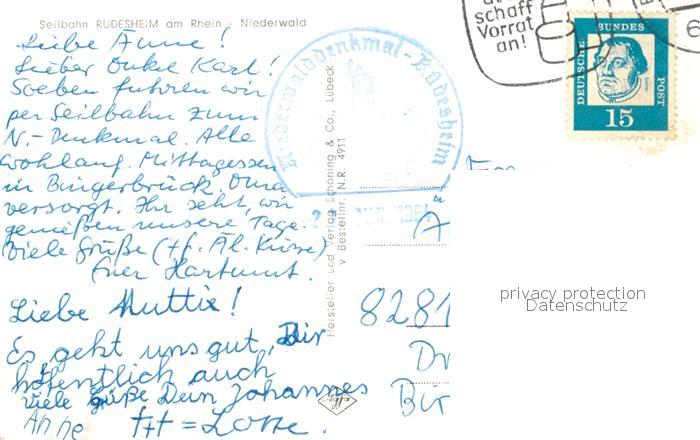 Seilbahn RÜDESHEIM am Rhein - Niederwald
schaff
Vorrat
an!
DEUTSCHE
BUNDES
POST
15
6
Niederwalddenkmal-Rüdesheim
Liebe Änne!
Lieber Onkel Karl!
Soeben fuhren wir
per Seilbahn zum
N.-Denkmal. Alle
wohlauf. Mittagessen
in Bingerbrück. Oma
versorgt. Ihr seht, wir
genießen unsere Tage.
Viele Grüße (tf. Äl. Küsse)
Euer Hartmut.
Liebe Muttix!
Es geht uns gut, Dir
hoffentlich auch
viele Grüße Dein Johannes
Anne ttt = Lotte.
Hersteller und Verlag Schöning & Co., Lübeck
Bestellnr. N.R. 4911
8281
Dr
Bir
privacy protection
Datenschutz